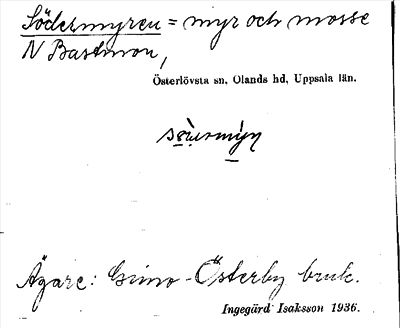 Södermyren = myr och mosse
N Bastmon,
Österlövsta sn, Olands hd, Uppsala län.
Ägare: Gimo-Österby bruk.
Ingegärd Isaksson 1936.